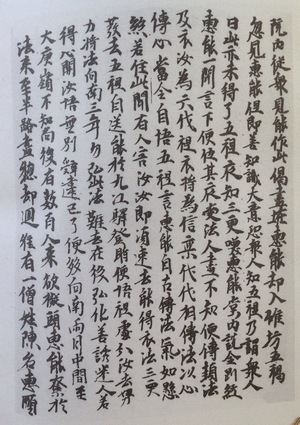 院內徒眾見能作此偈盡怪惠能却入碓坊五祖
忽見惠能但即善知識大意恐眾人知五祖乃謂眾人
曰此亦未得了五祖夜知三更喚惠能堂內說金剛經
惠能一聞言下便伍其夜受法人盡不知便傳頓法
及衣汝為六代祖衣將為信稟代代相傳法以心
傳心當令自悟五祖言惠能自古傳法氣如懸
絲若住此間有人害汝汝即須速去能得衣法三更
發去五祖自送能於九江驛登時便悟祖處分汝去努
力將法向南三年勿弘此法難去在後弘化善誘迷人若
得心開汝悟無別辭違已了便發向南兩月中間至
大庾嶺不知向後有數百人來欲擬頭惠能奪於
法來至半路盡總却迴唯有一僧姓陳名惠順